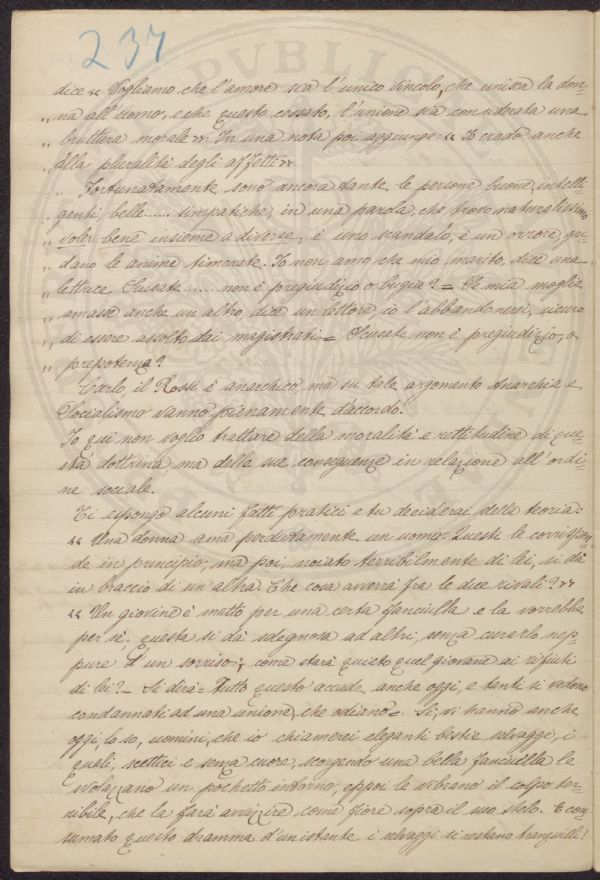 237
dice « Vogliamo che l'amore sia l'unico vincolo, che unisca la don=
„ na all'uomo, e che questo cessato, l'unione sia considerata una
„ bruttura morale ». In una nota poi aggiunge: « Io credo anche
„ alla pluralità degli affetti ».
„ Fortunatamente sono ancora tante le persone buone, intelli=
„ genti, belle...... simpatiche, in una parola, che trovo naturalissimo
„ voler bene insieme a diverse, è uno scandalo, è un orrore, gri=
„ dano le anime timorate. Io non amo che mio marito, dice una
„ lettrice. Scusate....... non è pregiudizio o bugia? = Se mia moglie
„ amasse anche un altro, dice un lettore, io l'abbandonerei, sicuro
„ di essere assolto dai magistrati = Scusate non è pregiudizio, o
„ prepotenza?
Carlo, il Rossi è anarchico, ma su tale argomento Anarchia e
Socialismo vanno pienamente d'accordo.
Io qui non voglio trattare della moralità e rettitudine di que=
sta dottrina ma delle sue conseguenze in relazione all'ordi=
ne sociale.
Ti espongo alcuni fatti pratici e tu deciderai della teoria:
« Una donna ama perdutamente un uomo. Questi le corrispon=
de in principio, ma poi, noiato terribilmente di lei, si dà
in braccio di un'altra. Che cosa avverrà fra le due rivali? »
« Un giovine è matto per una certa fanciulla e la vorrebbe
per sè; questa si dà sdegnosa ad altri, senza curarlo nep=
pure d'un sorriso; come starà quieto quel giovane ai rifiuti
di lei? — Si dirà = Tutto questo accade anche oggi, e tanti si vedono
condannati ad una unione, che odiano =. Sì, vi hanno anche
oggi, lo so, uomini, che io chiamerei eleganti bestie selvagge, i
quali, scettici e senza cuore, scorgendo una bella fanciulla le
svolazzano un pochetto intorno, eppoi le vibrano il colpo ter=
ribile, che la farà avvizzire come fiore sopra il suo stelo. E con=
sumato questo dramma d'un istante i selvaggi si restano tranquilli!